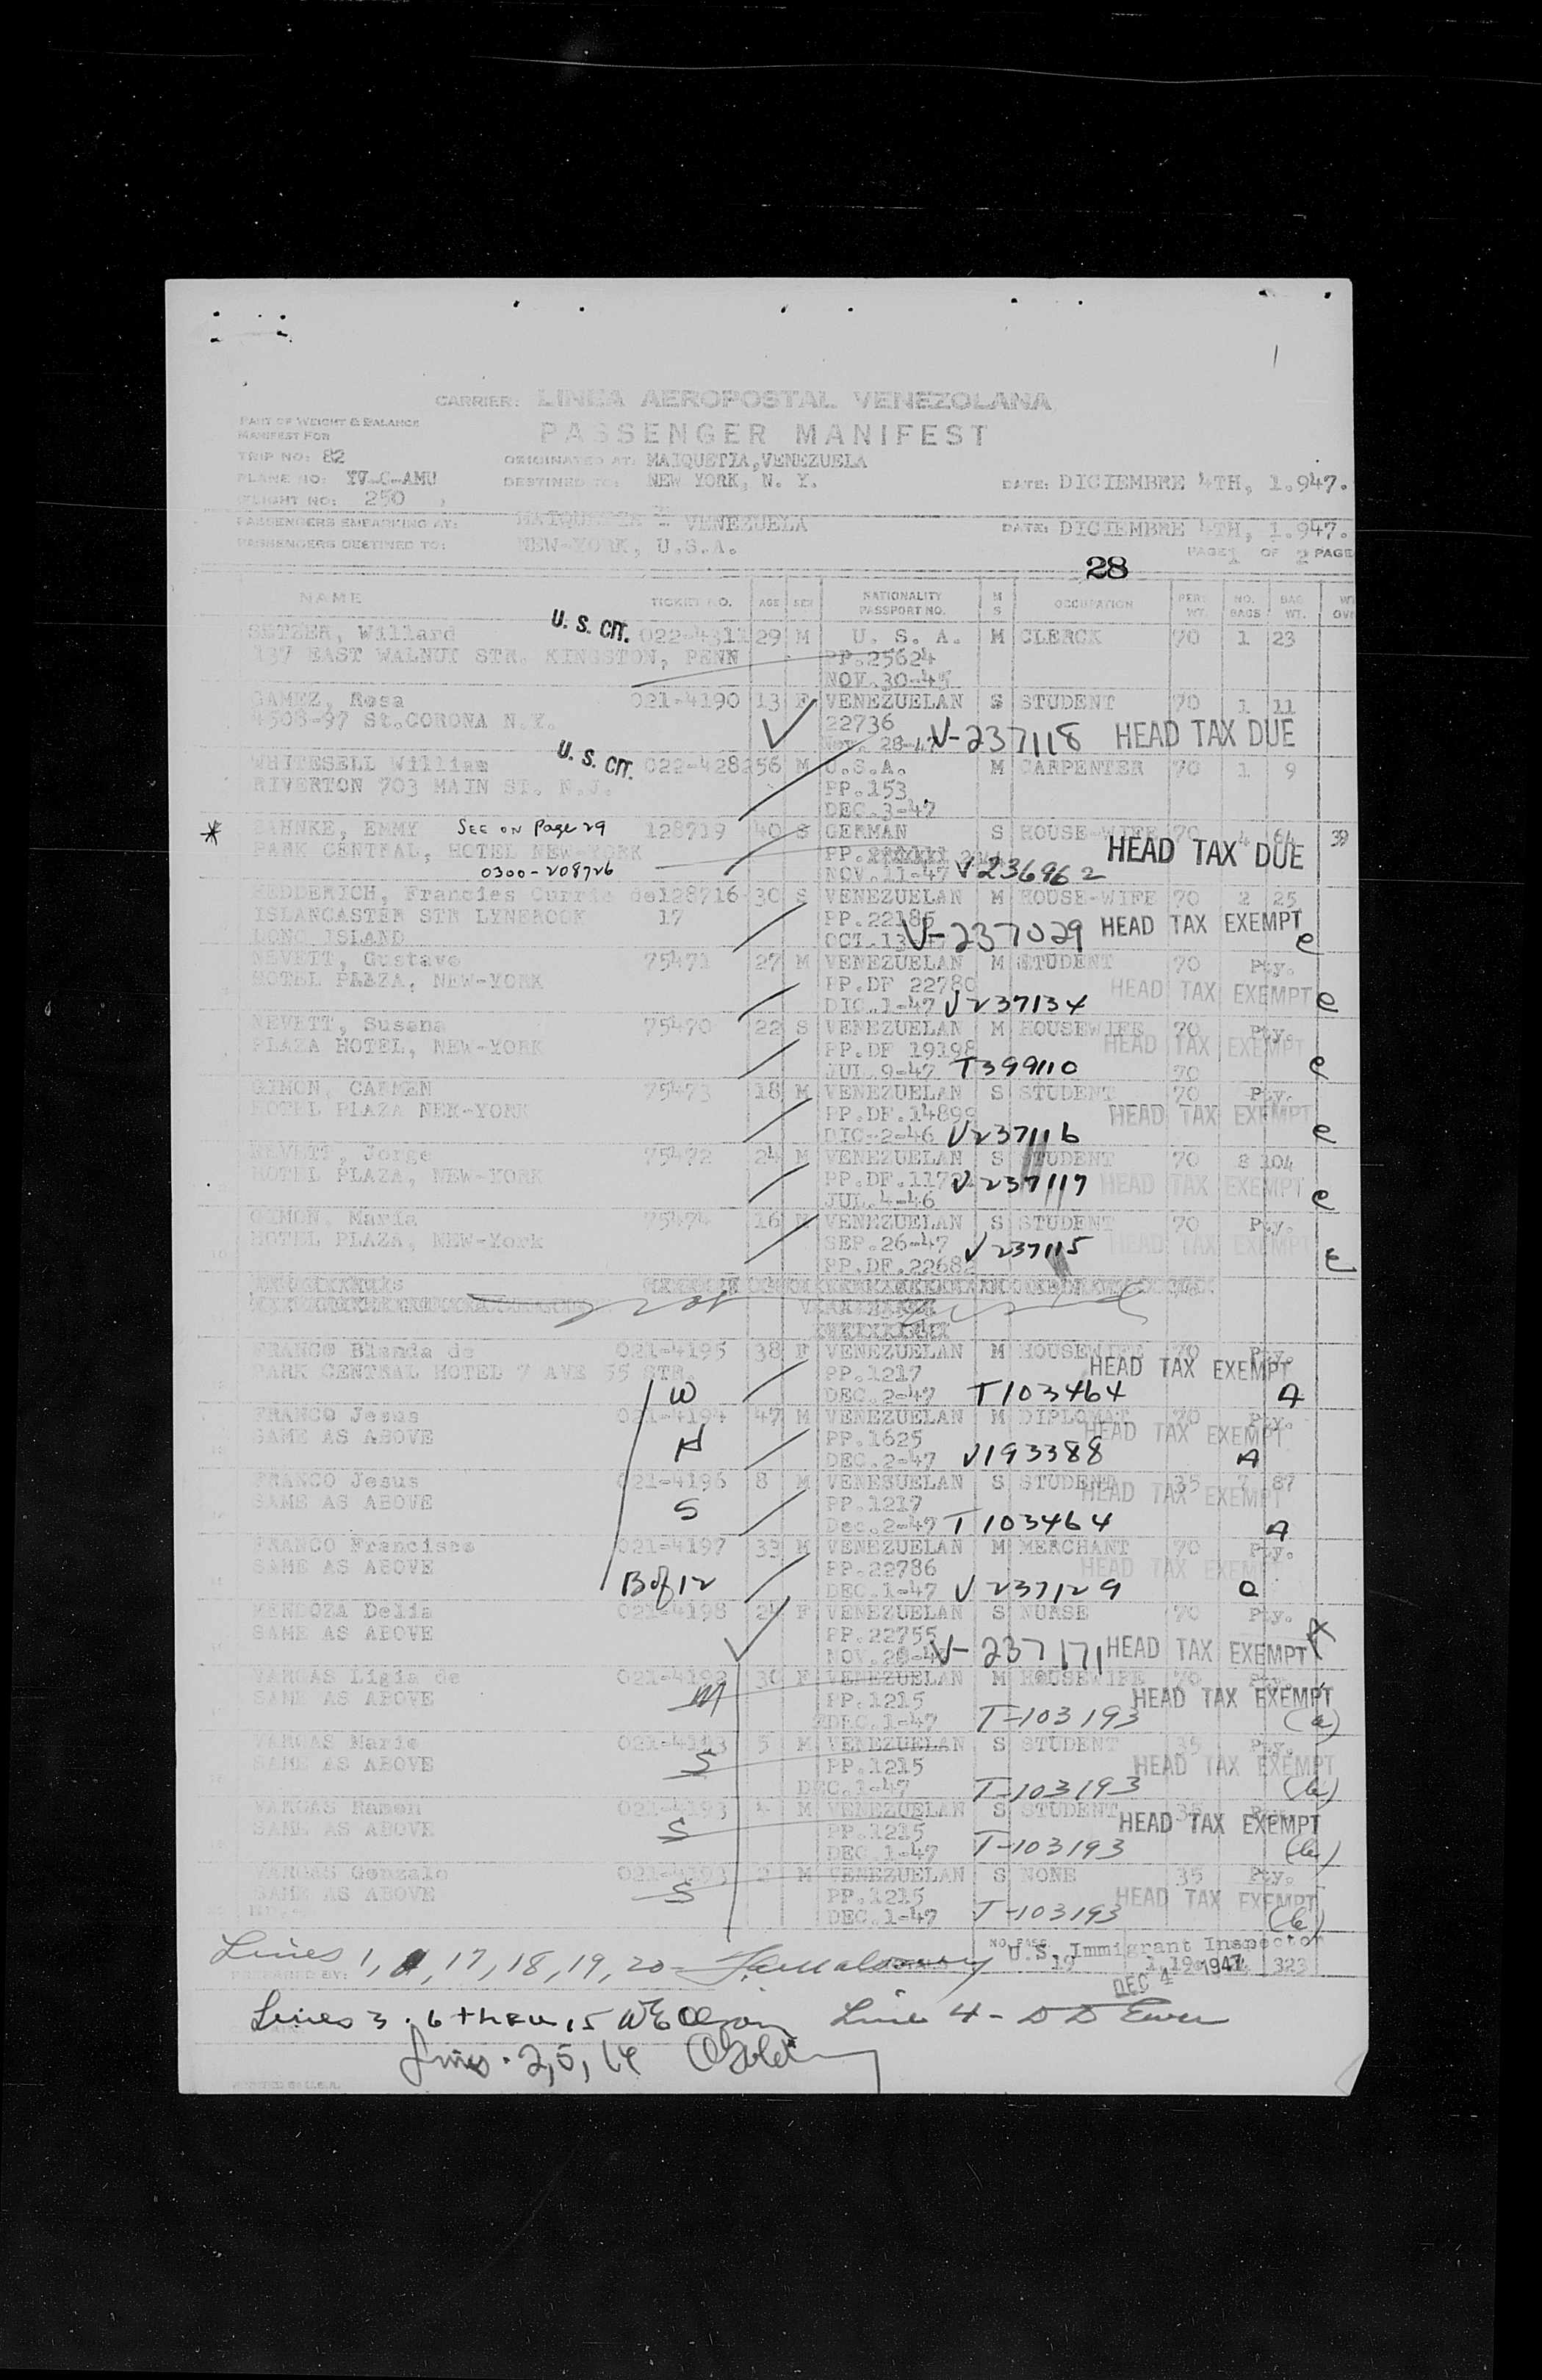 CARRIER: LINEA AEROPOSTAL VENEZOLANA
PART OF WEIGHT & BALANCE
MANIFEST FOR
PASSENGER MANIFEST
TRIP NO: 82
ORIGINATED AT: MAIQUETIA, VENEZUELA
PLANE NO: YV-C-AMU
DESTINED TO: NEW YORK, N. Y.
DATE: DICIEMBRE 4TH, 1.947.
FLIGHT NO: 250
PASSENGERS EMBARKING AT: MAIQUETIA - VENEZUELA
DATE: DICIEMBRE 4TH, 1.947.
PASSENGERS DESTINED TO: NEW-YORK, U.S.A.
PAGE 1 OF 2 PAGE
28
NAME TICKET NO. AGE SEX NATIONALITY PASSPORT NO. M S OCCUPATION PERS. WT. NO. BAGS BAG WT. WT OVE
SETZER, Willard U. S. CIT. 29 M U. S. A. M CLERCK 70 1 23
137 EAST WALNUT STR. KINGSTON, PENN PP.25624
NOV.30-45
GAMEZ, Rosa 021-4190 13 F VENEZUELAN S STUDENT 70 1 11
4508-97 St.CORONA N.Y. 22736
Nov. 28-47 V-237118 HEAD TAX DUE
WHITESELL William U. S. CIT. 022-4282 56 M U.S.A. M CARPENTER 70 1 9
RIVERTON 703 MAIN ST. N.J. PP.153
DEC.3-47
* BAHNKE, EMMY SEE ON Page 29 128719 40 S GERMAN S HOUSE-WIFE 70 4 64 39
PARK CENTRAL, HOTEL NEW-YORK PP. HEAD TAX DUE
0300-208726 NOV.11-47 V236962
HEDDERICH, Francies Currie de 128716 30 S VENEZUELAN M HOUSE-WIFE 70 2 25
ISLANCASTER STR LYNBROOK 17 PP.22185
LONG ISLAND OCT.13 V-237029 HEAD TAX EXEMPT e
NEVETT, Gustavo 75471 27 M VENEZUELAN M STUDENT 70 Pty.
HOTEL PLAZA, NEW-YORK PP.DF 22780 HEAD TAX EXEMPT e
DIC.1-47 V237134
NEVETT, Susana 75470 22 S VENEZUELAN M HOUSEWIFE 70 Pty.
PLAZA HOTEL, NEW-YORK PP.DF 19198 HEAD TAX EXEMPT
JUL.9-47 T399110 70 e
GIMON, CARMEN 75473 18 M VENEZUELAN S STUDENT 70 Pty.
HOTEL PLAZA NEW-YORK PP.DF.14899 HEAD TAX EXEMPT
DIC-2-46 V237116 e
NEVETT, Jorge 75472 24 M VENEZUELAN S STUDENT 70 8 104
HOTEL PLAZA, NEW-YORK PP.DF. V237117 HEAD TAX EXEMPT
JUL.4-46 e
GIMON, Maria 75474 16 M VENEZUELAN S STUDENT 70 Pty.
HOTEL PLAZA, NEW-York SEP.26-47 V237115 HEAD TAX EXEMPT
PP.DF.22682 E
FRANCO Blanda de 021-4195 38 F VENEZUELAN M HOUSEWIFE 70 Pty.
PARK CENTRAL HOTEL 7 AVE 55 STR. PP.1217 HEAD TAX EXEMPT
W DEC.2-47 T103464 A
FRANCO Jesus 021-4194 47 M VENEZUELAN M DIPLOMAT 70 Pty.
SAME AS ABOVE H PP.1625 HEAD TAX EXEMPT
DEC.2-47 V193388 A
FRANCO Jesus 021-4196 8 M VENESUELAN S STUDENT 35 7 87
SAME AS ABOVE S PP.1217 HEAD TAX EXEMPT
Dec.2-47 T103464 A
FRANCO Francisco 021-4197 33 M VENEZUELAN M MERCHANT 70 Pty.
SAME AS ABOVE PP.22786 HEAD TAX EXEMPT
B of 12 DEC.1-47 V237129 a
MENDOZA Delia 021-4198 24 F VENEZUELAN S NURSE 70 Pty.
SAME AS ABOVE PP.22755
NOV.28-4 V-237171 HEAD TAX EXEMPT
VARGAS Ligia de 021-4192 30 F VENEZUELAN M HOUSEWIFE 70 Pty.
SAME AS ABOVE M PP.1215 HEAD TAX EXEMPT
DEC.1-47 T-103193 (a)
VARGAS Marie 021-4193 5 M VENEZUELAN S STUDENT 35 Pty.
SAME AS ABOVE S PP.1215 HEAD TAX EXEMPT
DEC.1-47 T-103193 (b)
VARGAS Ramon 021-4193 4 M VENEZUELAN S STUDENT 35
SAME AS ABOVE S PP.1215 HEAD TAX EXEMPT
DEC.1-47 T-103193 (b)
VARGAS Gonzalo 021-4193 2 M VENEZUELAN S NONE 35 Pty.
SAME AS ABOVE S PP.1215 HEAD TAX EXEMPT
DEC.1-47 T-103193 (b)
Lines 1, 17, 18, 19, 20 - NO. PASS. U.S. Immigrant Inspector
PREPARED BY: 19 323
DEC 4 1947
Lines 3. 6 thru 15 Line 4 -
Lines. 2, 5,
PRINTED IN U.S.A.